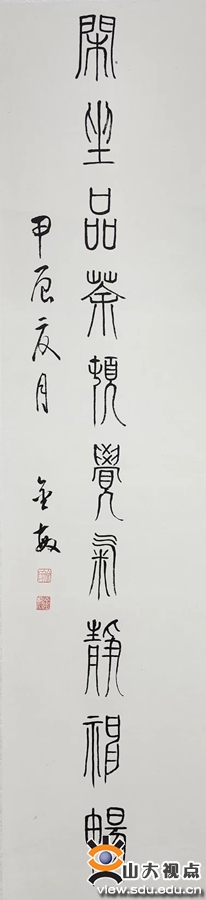 閑坐品茶頓覺氣靜神暢
甲辰夏月
金敏
山大视点
view.sdu.edu.cn